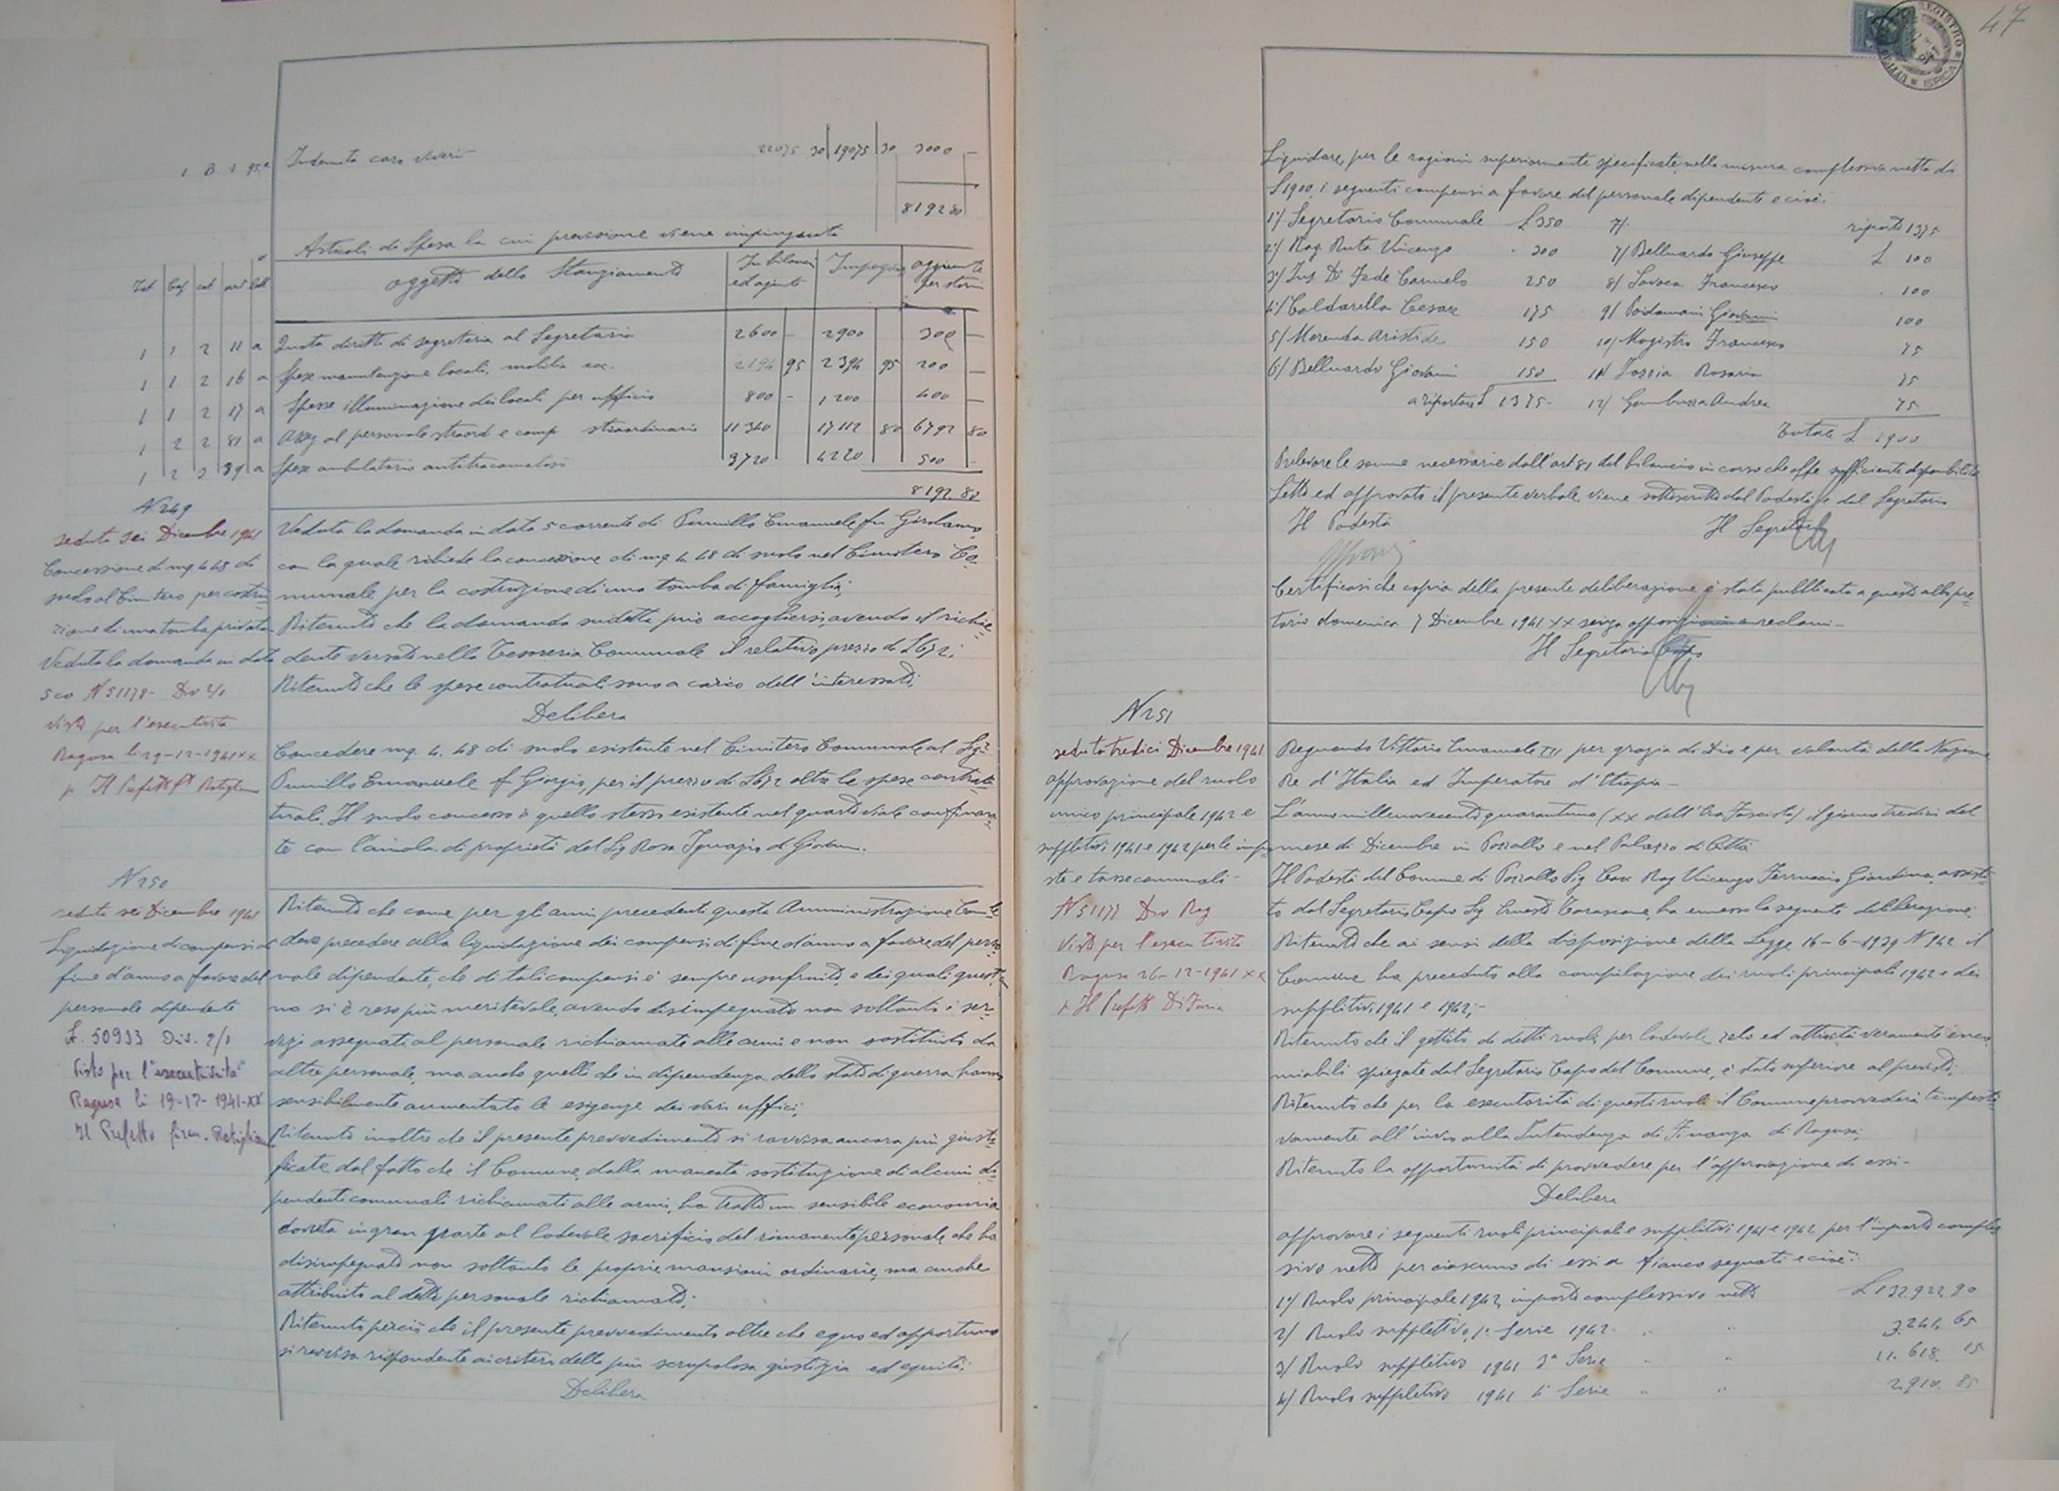 1 B 2 95a Indennità caro viveri 22075 30 19075 30 3000 —
8192 80
Articoli di Spesa la cui previsione viene impinguata
Tit Cap cat art lett oggetto dello Stanziamento In bilancio ed aggiunte Impegni aggiunte per storni
1 1 2 11 a Quota diritti di segreteria al Segretario 2600 — 2900 300 —
1 1 2 16 a Spese manutenzione locali, mobilia ecc. 2194 95 2394 95 200 —
1 1 2 17 a Spese illuminazione dei locali per ufficio 800 — 1200 400 —
1 2 2 81 a Asseg al personale straord e comp straordinario 11340 17112 80 6792 80
1 2 3 39 a Spese ambulatorio antitracomatoso 3720 4220 500 —
8192 80
N 249
seduta sei Dicembre 1941
Concessione di mq 4.48 di
suolo al Cimitero per costru-
zione di una tomba privata
Veduta la domanda in data
5 co N 51178 - Div 2/1
Visto per l'esecutività
Ragusa lì 29-12-1941 XX
p Il Prefetto f° Ratiglia
Veduta la domanda in data 5 corrente di Pumillo Emanuele fu Girolamo,
con la quale richiede la concessione di mq 4.48 di suolo nel Cimitero Co-
munale per la costruzione di una tomba di famiglia;
Ritenuto che la domanda suddetta può accogliersi avendo il richie-
dente versato nella Tesoreria Comunale il relativo prezzo di L 672;
Ritenuto che le spese contrattuali sono a carico dell'interessato;
Delibera
Concedere mq. 4.48 di suolo esistente nel Cimitero Comunale al Sig.
Pumillo Emanuele f Giorgio, per il prezzo di L 672 oltre le spese contrat-
tuali. Il suolo concesso è quello stesso esistente nel quarto viale confinan-
te con l'aiuola di proprietà del Sig Rosa Ignazio di Giovanni.
N 250
seduta sei Dicembre 1941
Liquidazione di compensi di
fine d'anno a favore del
personale dipendente
N. 50933 Div. 2/1
Visto per l'esecutività
Ragusa lì 19-12-1941-XX
Il Prefetto firm. Ratiglia
Ritenuto che come per gli anni precedenti questa Amministrazione Com.le
deve precedere alla liquidazione dei compensi di fine d'anno a favore del perso-
nale dipendente, che di tali compensi è sempre usufruito, e dei quali quest'an-
no si è reso più meritevole, avendo disimpegnato non soltanto i ser-
vizi assegnati al personale richiamato alle armi e non sostituito da
altro personale, ma anche quelli che in dipendenza dello stato di guerra hanno
sensibilmente aumentato le esigenze dei vari uffici;
Ritenuto inoltre che il presente provvedimento si ravvisa ancora più giusti-
ficato dal fatto che il Comune, dalla mancata sostituzione di alcuni di-
pendenti comunali richiamati alle armi, ha tratto un sensibile economia
dovuta in gran parte al lodevole sacrificio del rimanente personale, che ha
disimpegnato non soltanto le proprie mansioni ordinarie, ma anche
attribuito al detto personale richiamato;
Ritenuto perciò che il presente provvedimento oltre che equo ed opportuno
si ravvisa rispondente ai criteri della più scrupolosa giustizia ed equità;
Delibera
47
Liquidare, per le ragioni superiormente specificate, nella misura complessiva netta di
L 1900, i seguenti compensi a favore del personale dipendente e cioè:
1°/ Segretario Comunale L 350 7/. riporto 1375
2°/ Rag. Ruta Vincenzo " 300 7/ Belluardo Giuseppe L 100
3°/ Ins. Di Fede Carmelo 250 8/ Savoca Francesco " 100
4°/ Caldarella Cesare 175 9/ Poidomani Giovanni 100
5/ Merenda Aristide 150 10/ Magistro Francesco 75
6/ Belluardo Giovanni 150 11/ Iozzia Rosario 75
a riportare L 1375.- 12/ Gambuzza Andrea 75
Totale L 1900
Prelevare le somme necessarie dall'art 81 del bilancio in corso che offre sufficiente disponibilità
Letto ed approvato il presente verbale viene sottoscritto dal Podestà e dal Segretario
Il Podestà Il Segretario
Certificasi che copia della presente deliberazione è stata pubblicata a questo albo pre-
torio domenica 7 Dicembre 1941 XX senza opposizioni e reclami -
Il Segretario Capo
N 251
seduta tredici Dicembre 1941
approvazione del ruolo
unico principale 1942 e
suppletivi 1941 e 1942 per le impo-
ste e tasse comunali -
N 51177 Div Rag
Visto per l'esecutività
Ragusa 26-12-1941 XX
p Il Prefetto Di Furia
Regnando Vittorio Emanuele III per grazia di Dio e per volontà della Nazione
Re d'Italia ed Imperatore d'Etiopia -
L'anno millenovecentoquarantuno (XX dell'Era Fascista) il giorno tredici del
mese di Dicembre in Pozzallo e nel Palazzo di Città
Il Podestà del Comune di Pozzallo Sig Cav Rag Vincenzo Ferruccio Giardina, assisti-
to dal Segretario Capo Sig Ernesto Tarascone, ha emesso la seguente deliberazione:
Ritenuto che ai sensi della disposizione della Legge 16-6-1939 N 942 il
Comune ha preceduto alla compilazione dei ruoli principali 1942 e dei
suppletivi 1941 e 1942;-
Ritenuto che il gettito di detti ruoli, per lodevole zelo ed attività veramente enco-
miabili spiegate dal Segretario Capo del Comune, è stato superiore al previsto;
Ritenuto che per la esecutorità di questi ruoli il Comune provvederà tempesti-
vamente all'invio alla Intendenza di Finanza di Ragusa;
Ritenuto la opportunità di provvedere per l'approvazione di essi -
Delibera
approvare i seguenti ruoli principali e suppletivi 1941 e 1942 per l'importo comples-
sivo netto per ciascuno di essi a fianco segnati e cioè:
1°/ Ruolo principale 1942, importo complessivo netto L 132922,90
2/ Ruolo suppletivo, 1ª Serie 1942 " " 3.241. 65
3/ Ruolo suppletivo 1941 3ª Serie " " 11.618. 15
4/ Ruolo suppletivo 1941 4ª Serie " " 2.910. 85